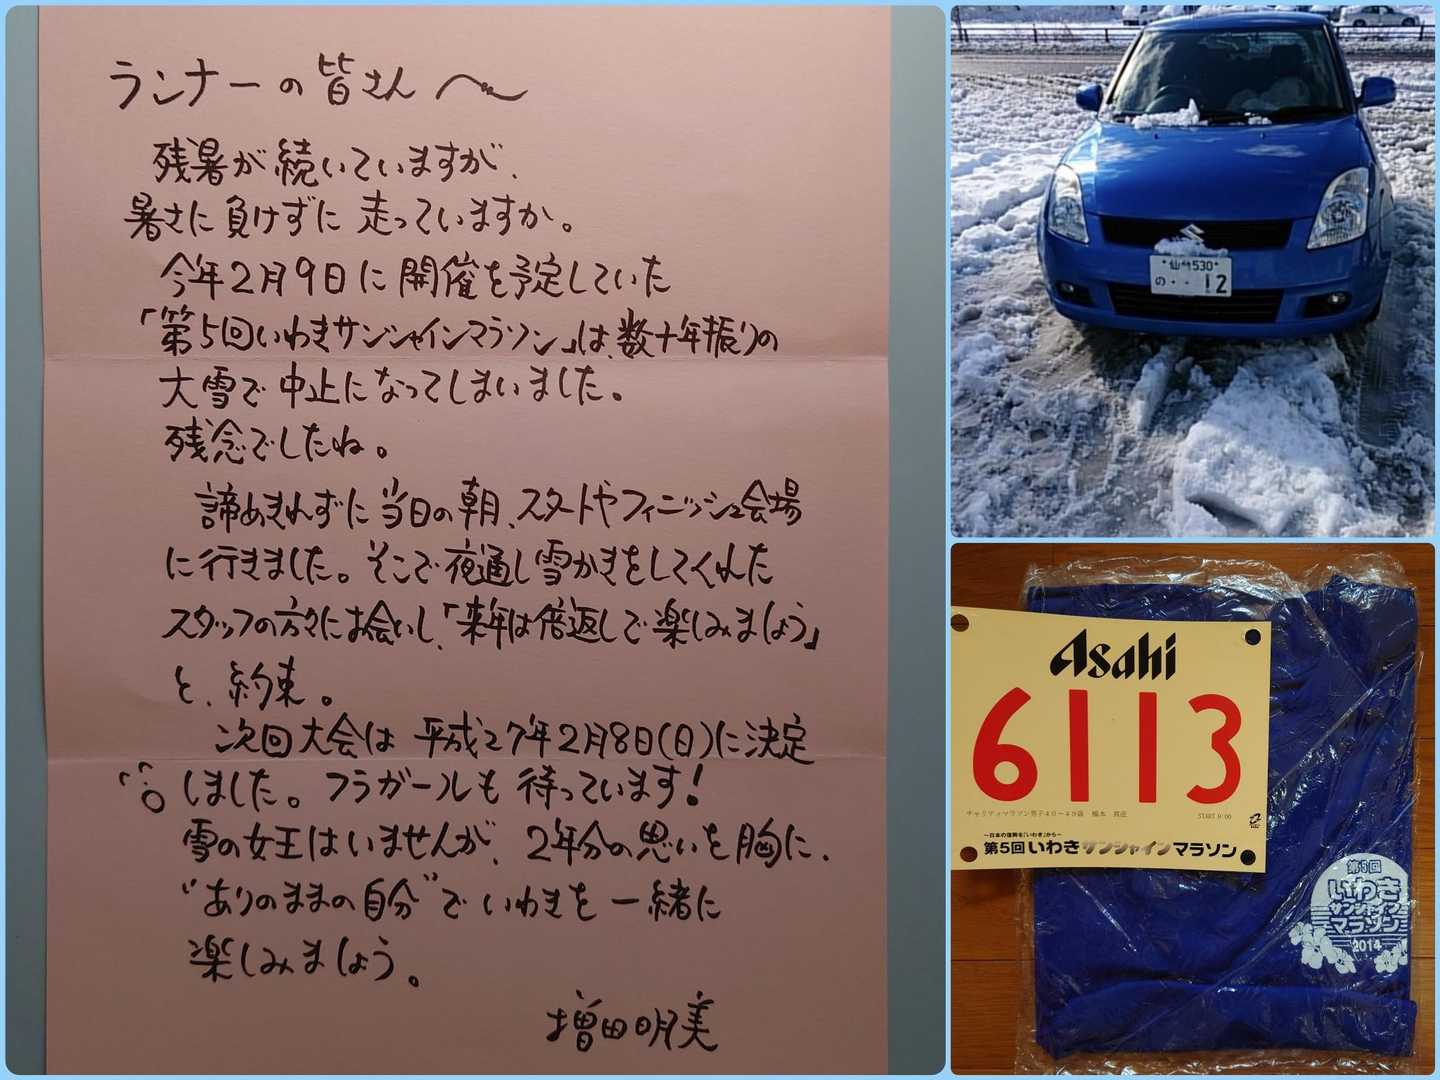 ランナーの皆さんへ〜
残暑が続いていますが、
暑さに負けずに走っていますか。
今年2月9日に開催を予定していた
「第5回いわきサンシャインマラソン」は、数十年振りの
大雪で中止になってしまいました。
残念でしたね。
諦めきれずに当日の朝、スタートやフィニッシュ会場
に行きました。そこで夜通し雪かきをしてくれた
スタッフの方々にお会いし、「来年は倍返しで楽しみましょう」
と、約束。
次回大会は平成27年2月8日(日)に決定
しました。フラガールも待っています!
雪の女王はいませんが、2年分の思いを胸に、
"ありのままの自分"でいわきを一緒に
楽しみましょう。
増田明美
仙台530
の・・12
Asahi
6113
チャリティマラソン男子40〜49歳
START 9:00
〜日本の復興を「いわき」から〜
第5回いわきサンシャインマラソン
第5回
いわき
サンシャイン
マラソン
2014